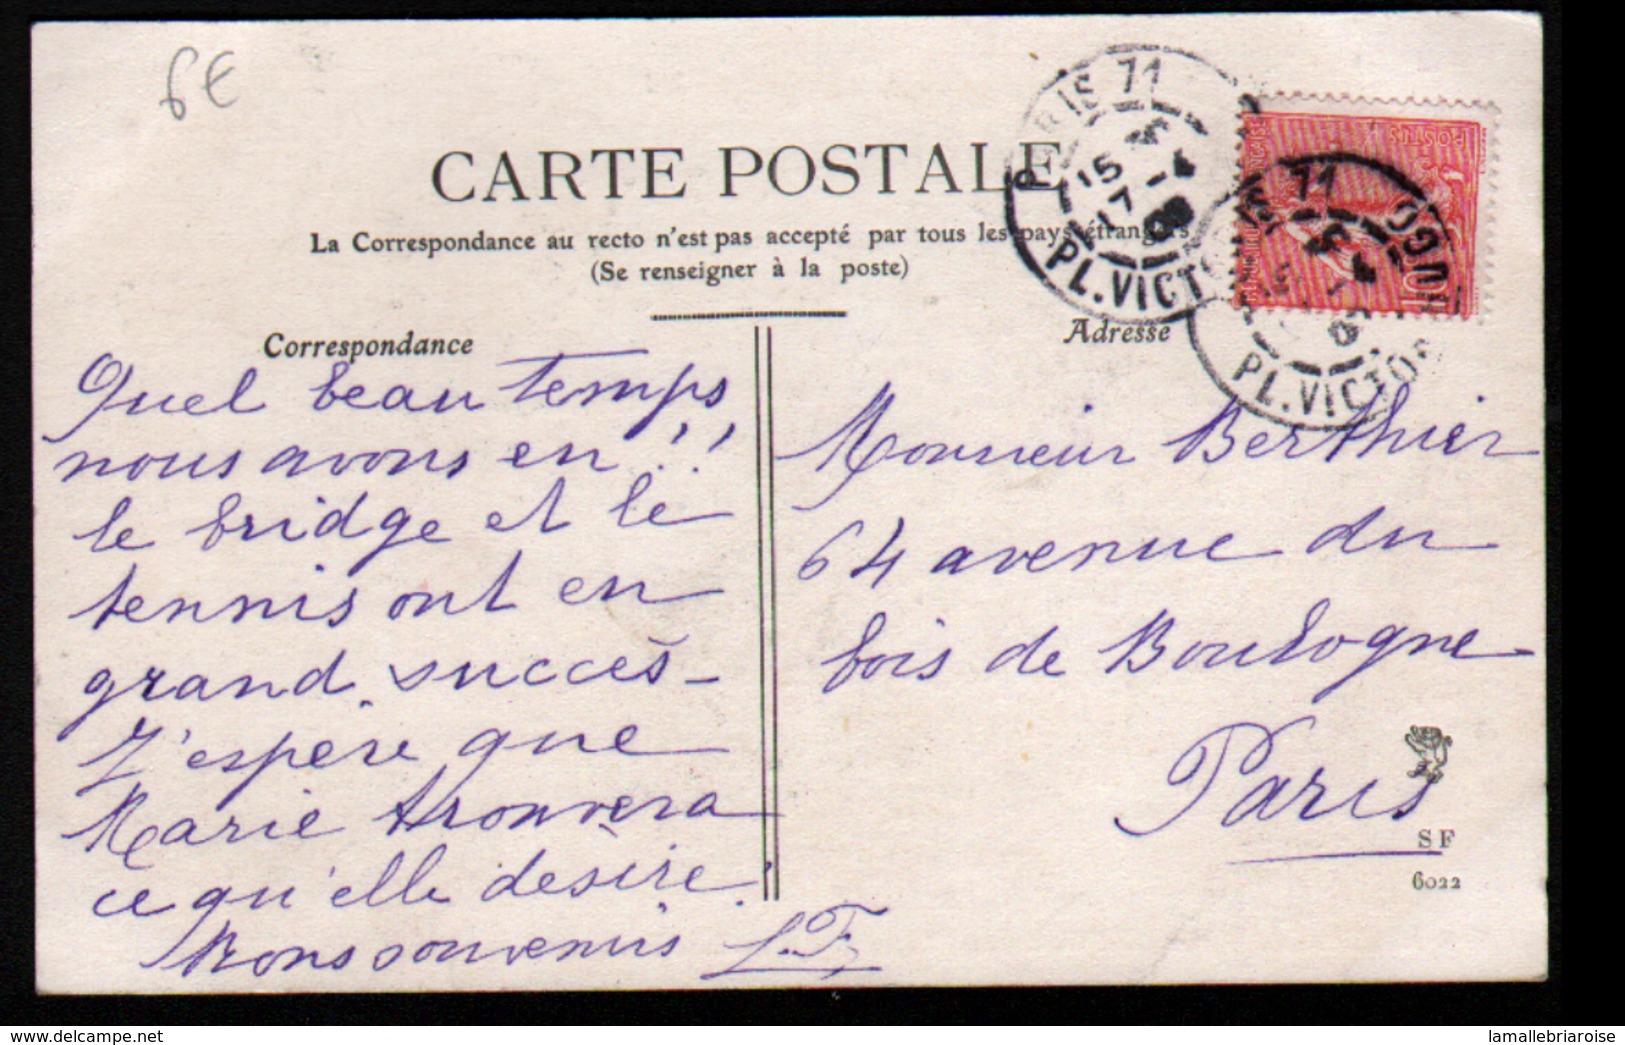 6€
CARTE POSTALE
La Correspondance au recto n'est pas accepté par tous les pays étrangers
(Se renseigner à la poste)
Correspondance
Adresse
PARIS 71
15
17 - 4
PL. VICTOR HUGO
PARIS 71
PL. VICTOR HUGO
POSTES
10
Quel beau temps
nous avons en !!
le bridge et le
tennis ont en
grand succès -
J'espère que
Marie trouvera
ce qu'elle désire.
Bons souvenirs L.F.
Monsieur Berthier
64 avenue du
bois de Boulogne
Paris
SF
6022
delcampe.net
lamallebriaroise